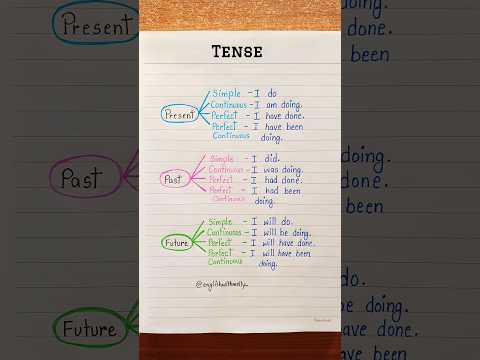 TENSE
Present
Simple - I do
Continuous - I am doing.
Perfect - I have done.
Perfect - I have been
Continuous doing.
Past
Simple - I did.
Continuous - I was doing.
Perfect - I had done.
Perfect - I had been
Continuous doing.
Future
Simple - I will do.
Continuous - I will be doing.
Perfect - I will have done.
Perfect - I will have been
Continuous doing.
Present
done.
been
Past
doing.
done.
been
Future
do.
be doing.
have done.
have been